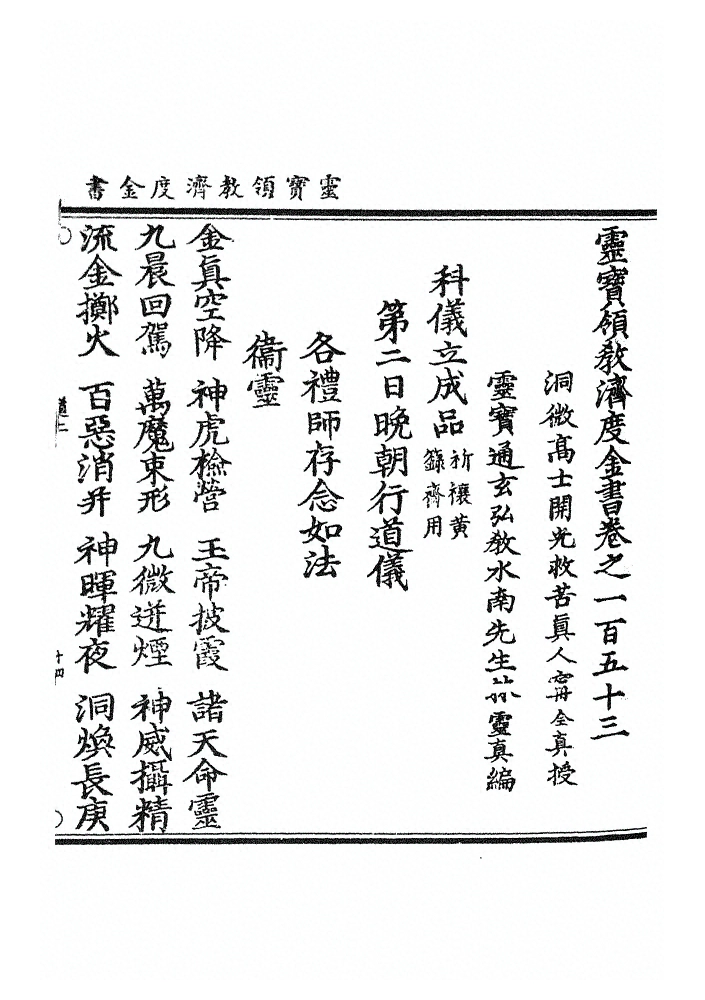 靈寶領教濟度金書
靈寶領教濟度金書卷之一百五十三
洞微高士開光救苦眞人甯全真授
靈寶通玄弘教水南先生林靈真編
科儀立成品 祈禳黃
籙齊用
第二日晚朝行道儀
各禮師存念如法
衞靈
金眞空降 神虎檢營 玉帝披霞 諸天命靈
九晨回駕 萬魔束形 九微迸煙 神威攝精
流金擲火 百惡消并 神暉耀夜 洞煥長庚